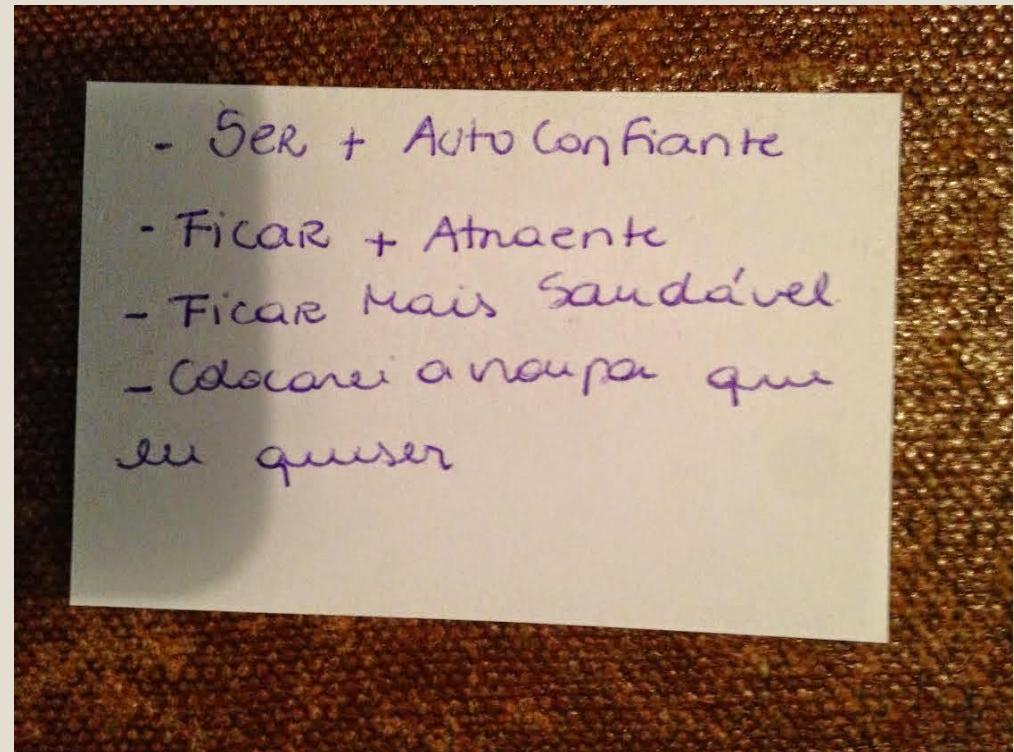 - Ser + Auto Confiante
- Ficar + Atraente
- Ficar Mais Saudável
- Colocarei a roupa que
eu quiser